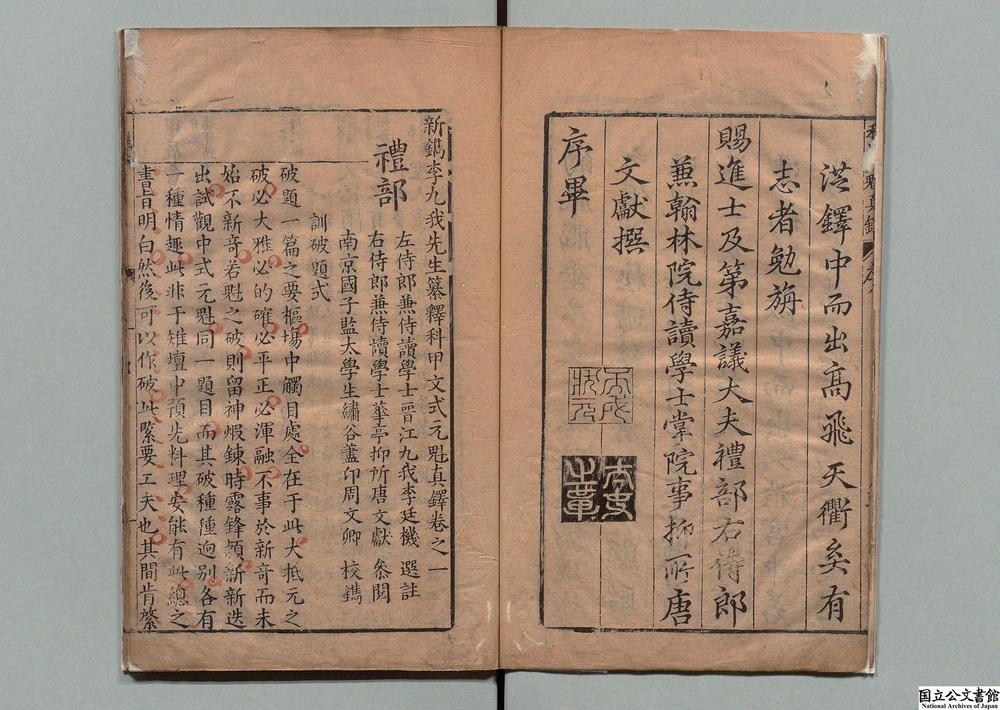 洪鐸中而出高飛天衢矣有
志者勉旃
賜進士及第嘉議大夫禮部右侍郎
蕪翰林院侍讀學士掌院事抑所唐
文獻撰
序畢
新鐫李九我先生纂釋科甲文式元魁真鐸卷之一
禮部
左侍郎蕪侍讀學士晉江九我李廷機 選註
右侍郎蕪侍讀學士華亭抑所唐文獻 叅閱
南京國子監太學生繡谷藎印周文卿 校鐫
訓破題式
破題一篇之要樞塲中觸目處全在于此大抵元之
破必大雅必的確必平正必渾融不事於新奇而未
始不新奇若魁之破則留神煆鍊時露鋒頴新新迭
出試觀中式元魁同一題目而其破種種迥別各有
一種情趣此非于雉壇中預先料理安能有此總之
書旨明白然後可以作破此緊要工夫也其間肯綮
国立公文書館
National Archives of Japan